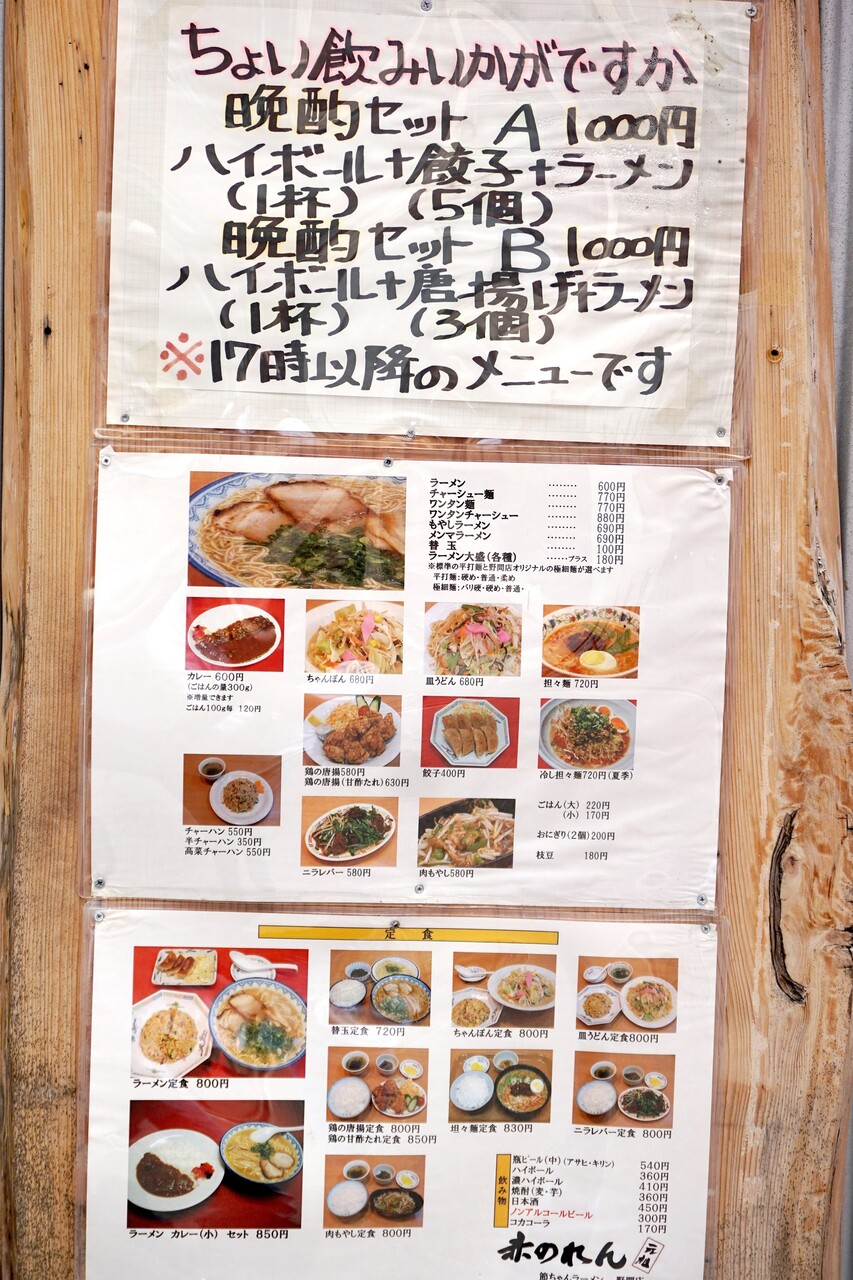 ちょい飲みいかがですか
晩酌セット A 1000円
ハイボール+餃子+ラーメン
(1杯) (5個)
晩酌セット B 1000円
ハイボール+唐揚げ+ラーメン
(1杯) (3個)
※17時以降のメニューです
ラーメン ········ 600円
チャーシュー麺 ········ 770円
ワンタン麺 ········ 770円
ワンタンチャーシュー 880円
もやしラーメン ········ 690円
メンマラーメン ········ 690円
替 玉 ········ 100円
ラーメン大盛(各種) ······プラス 180円
※標準の平打麺と野間店オリジナルの極細麺が選べます
平打麺:硬め・普通・柔め
極細麺:バリ硬・硬め・普通・
カレー 600円
(ごはんの量300g)
※増量できます
ごはん100g毎 120円
ちゃんぽん 680円
皿うどん 680円
担々麺 720円
鶏の唐揚580円
鶏の唐揚(甘酢たれ)630円
餃子400円
冷し担々麺720円(夏季)
チャーハン 550円
半チャーハン 350円
高菜チャーハン 550円
ニラレバー 580円
肉もやし580円
ごはん(大) 220円
(小) 170円
おにぎり(2個)200円
枝豆 180円
定 食
ラーメン定食 800円
替玉定食 720円
ちゃんぽん定食 800円
皿うどん定食800円
鶏の唐揚定食 800円
鶏の甘酢たれ定食 850円
坦々麺定食 830円
ニラレバー定食 800円
ラーメン カレー(小) セット 850円
肉もやし定食 800円
飲み物
瓶ビール(中)(アサヒ・キリン) 540円
ハイボール 360円
濃ハイボール 410円
焼酎(麦・芋) 360円
日本酒 450円
ノンアルコールビール 300円
コカコーラ 170円
赤のれん
元祖
節ちゃんラーメン 野間店